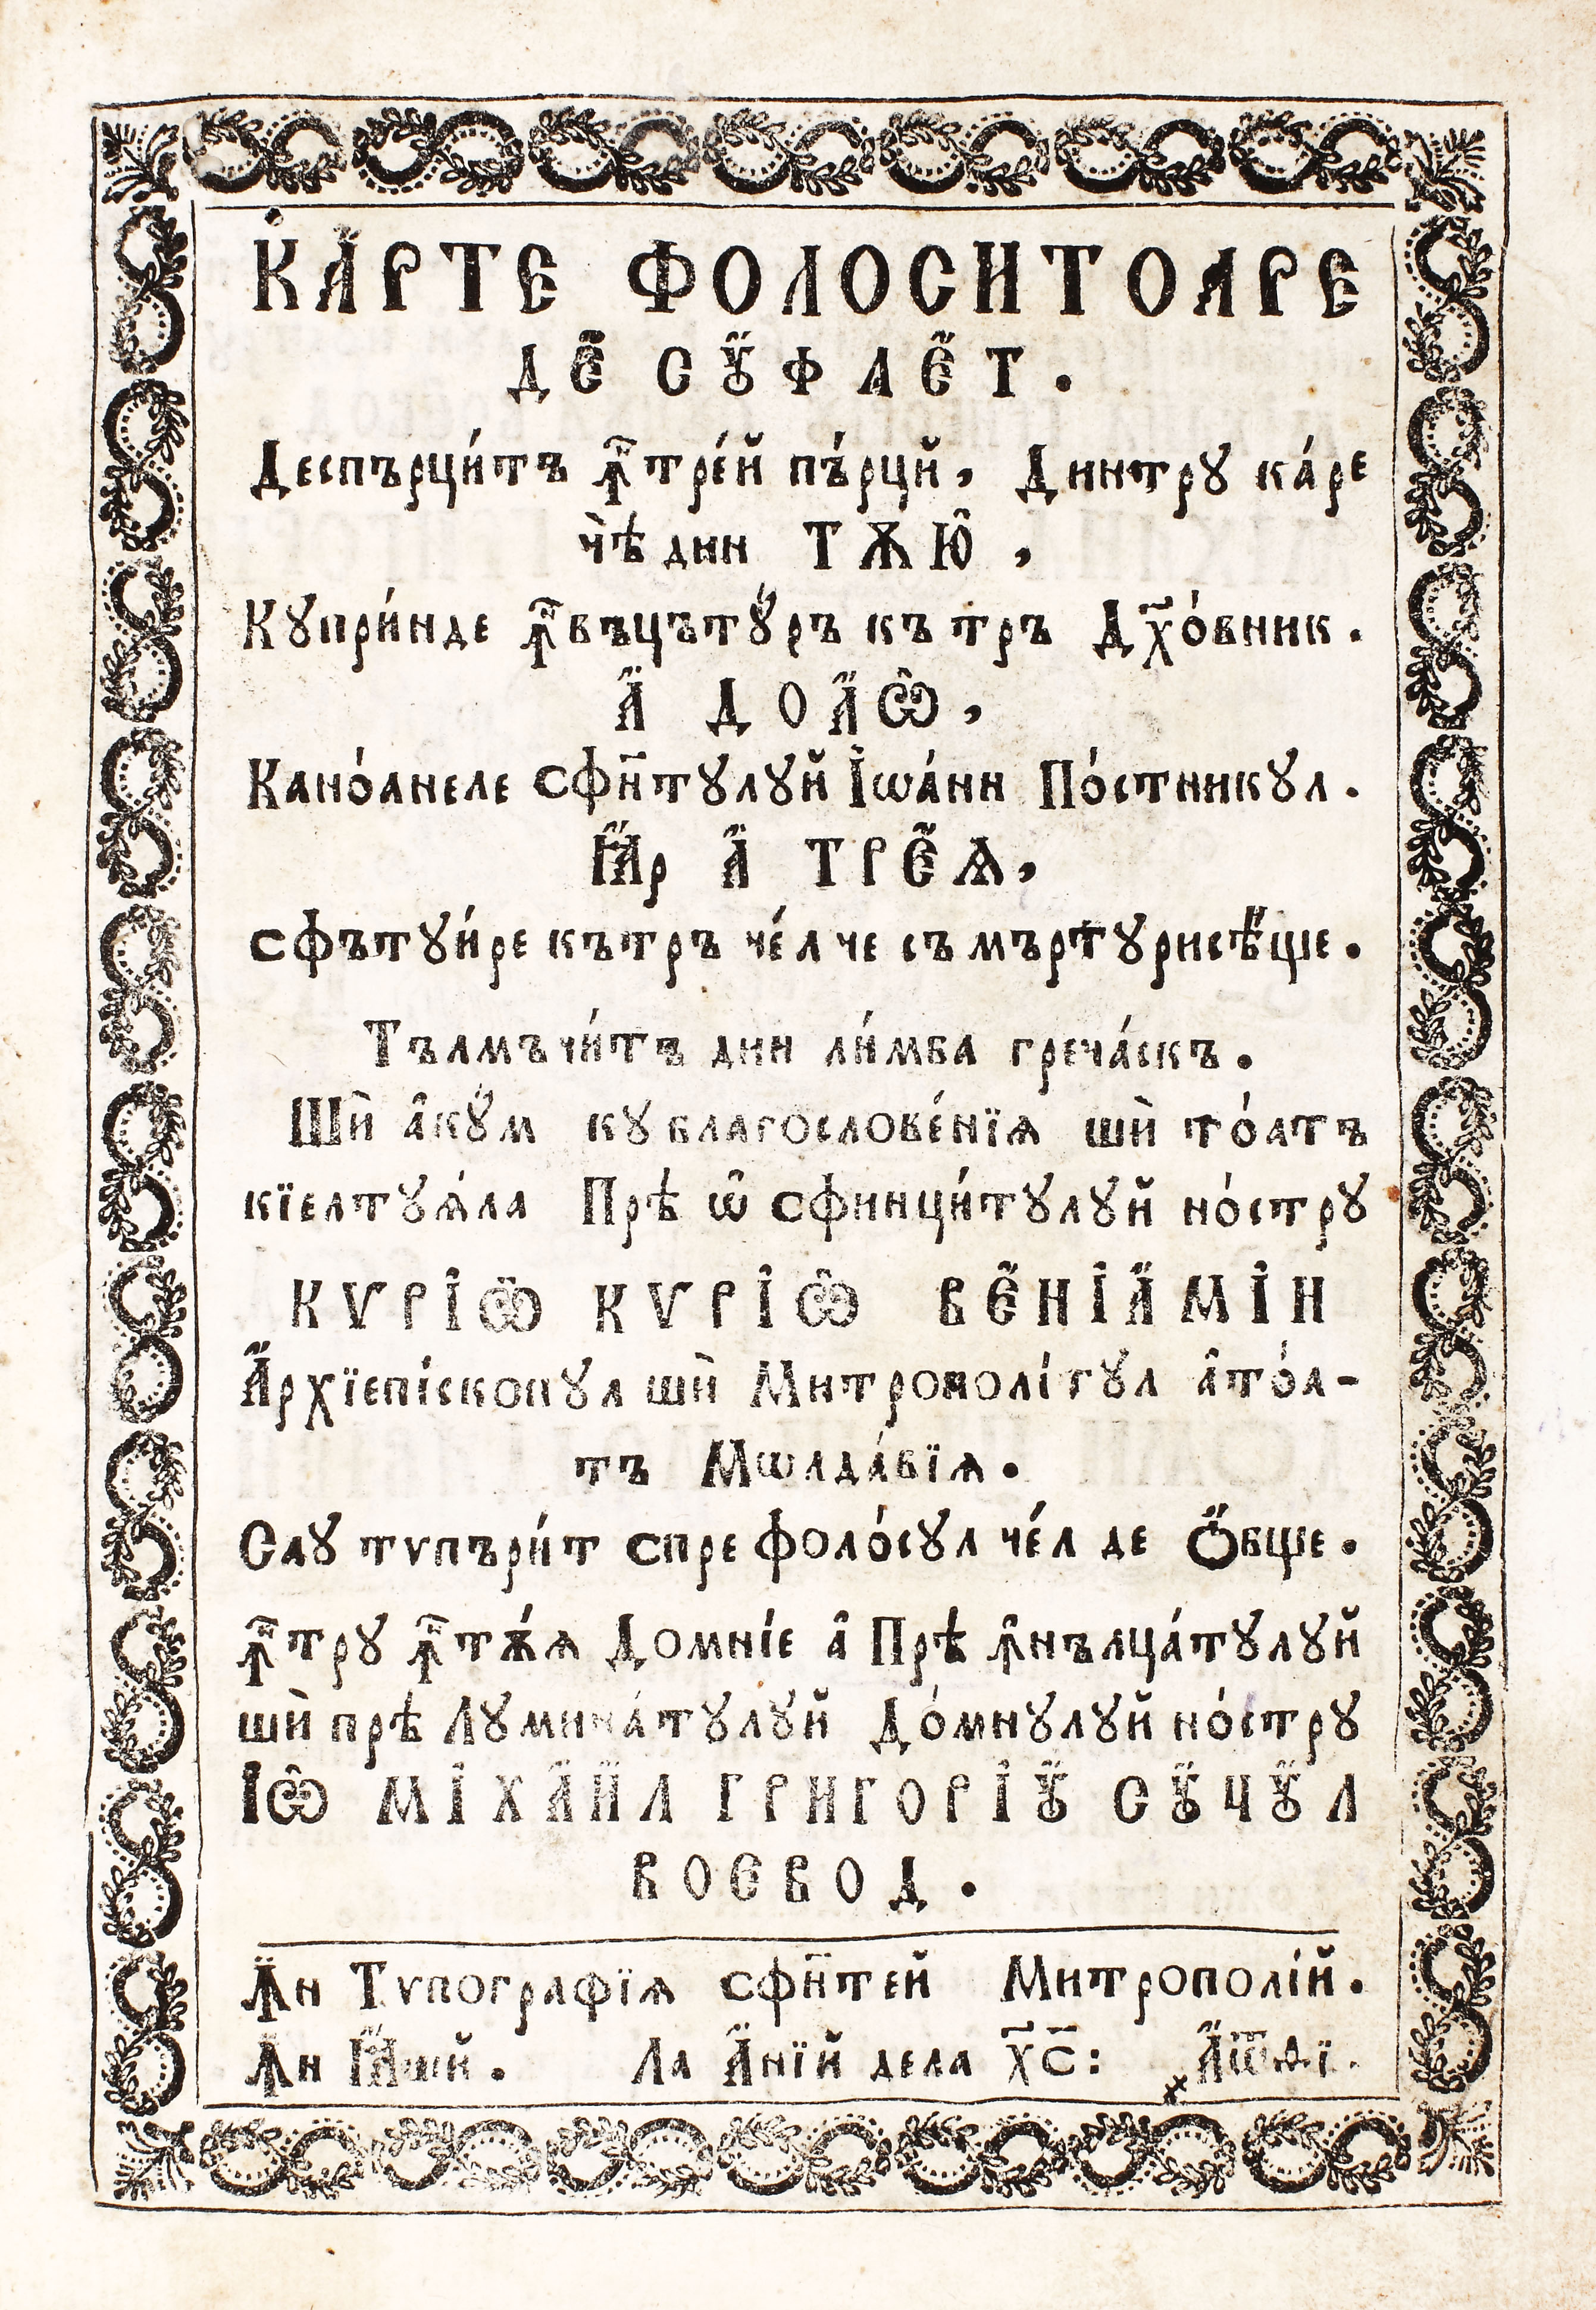 КА҆РТЕ ФОЛОСИТОАРЕ
ДЕ҆ СꙊ҆ФЛЕ҆Т.
Деспърци́тъ ꙟ҆тре́й пъ́рцй, Динтрꙋ ка́ре
чѣ̀ дин ТѪЮ̑,
Кꙋпри́нде ꙟ҆въцътꙋ́ръ кътръ Дх҃о́вник.
А҆ ДОА҆Ѽ,
Кано́анеле Сфн҃тꙋлꙋй І҆ѡа́нн По́стникꙋл.
Ꙗ҆р А҆ ТРЕ҆Ѧ,
Сфътꙋи́ре кътръ че́л че съ мъртꙋрисѣ́ще.
Тълмъчи́тъ дин ли́мба греча́скъ.
Шѝ а҆кꙋ́м кꙋ благослове́нїѧ шѝ то́атъ
кїелтꙋѧ́ла Прѣ ѡ҆ Сфинци́тꙋлꙋй но́стрꙋ
КѴРІѼ КѴРІѼ ВЕ҆НІА҆МІН
А҆рхїепі́скопꙋл шѝ Митрополі́тꙋл а҆то́а-
тъ Мѡлда́вїѧ.
Саꙋ тѵпъри́т Спре фоло́сꙋл че́л де О҆́бще.
Ꙟ҆трꙋ ꙟ҆тѫ́ѧ Домні́е а҆ Прѣ ꙟ҆нълца́тꙋлꙋй
шѝ прѣ Лꙋмина́тꙋлꙋй До́мнꙋлꙋй но́стрꙋ
ІѼ МІХАИ҆Л ГРИГОРІꙊ҆ СꙊ҆ЧꙊ҆Л
ВОЕВОД.
Ꙟ҆н Тѵпографїѧ Сфн҃тей Митрополі́й.
Ꙟ҆н Ꙗ҆шй. Ла А҆нїй дела Х҃С: ҂АѾѲІ.